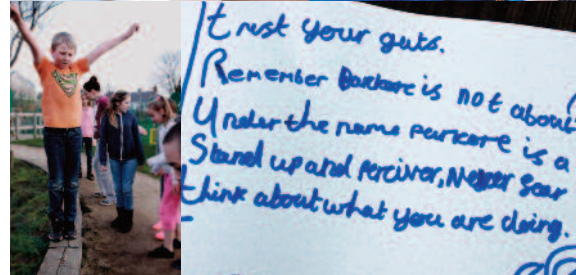 trust your guts.
Remember Parkore is not about
Under the name parkore is a
Stand up and perciver, Never Sear
think about what you are doing.